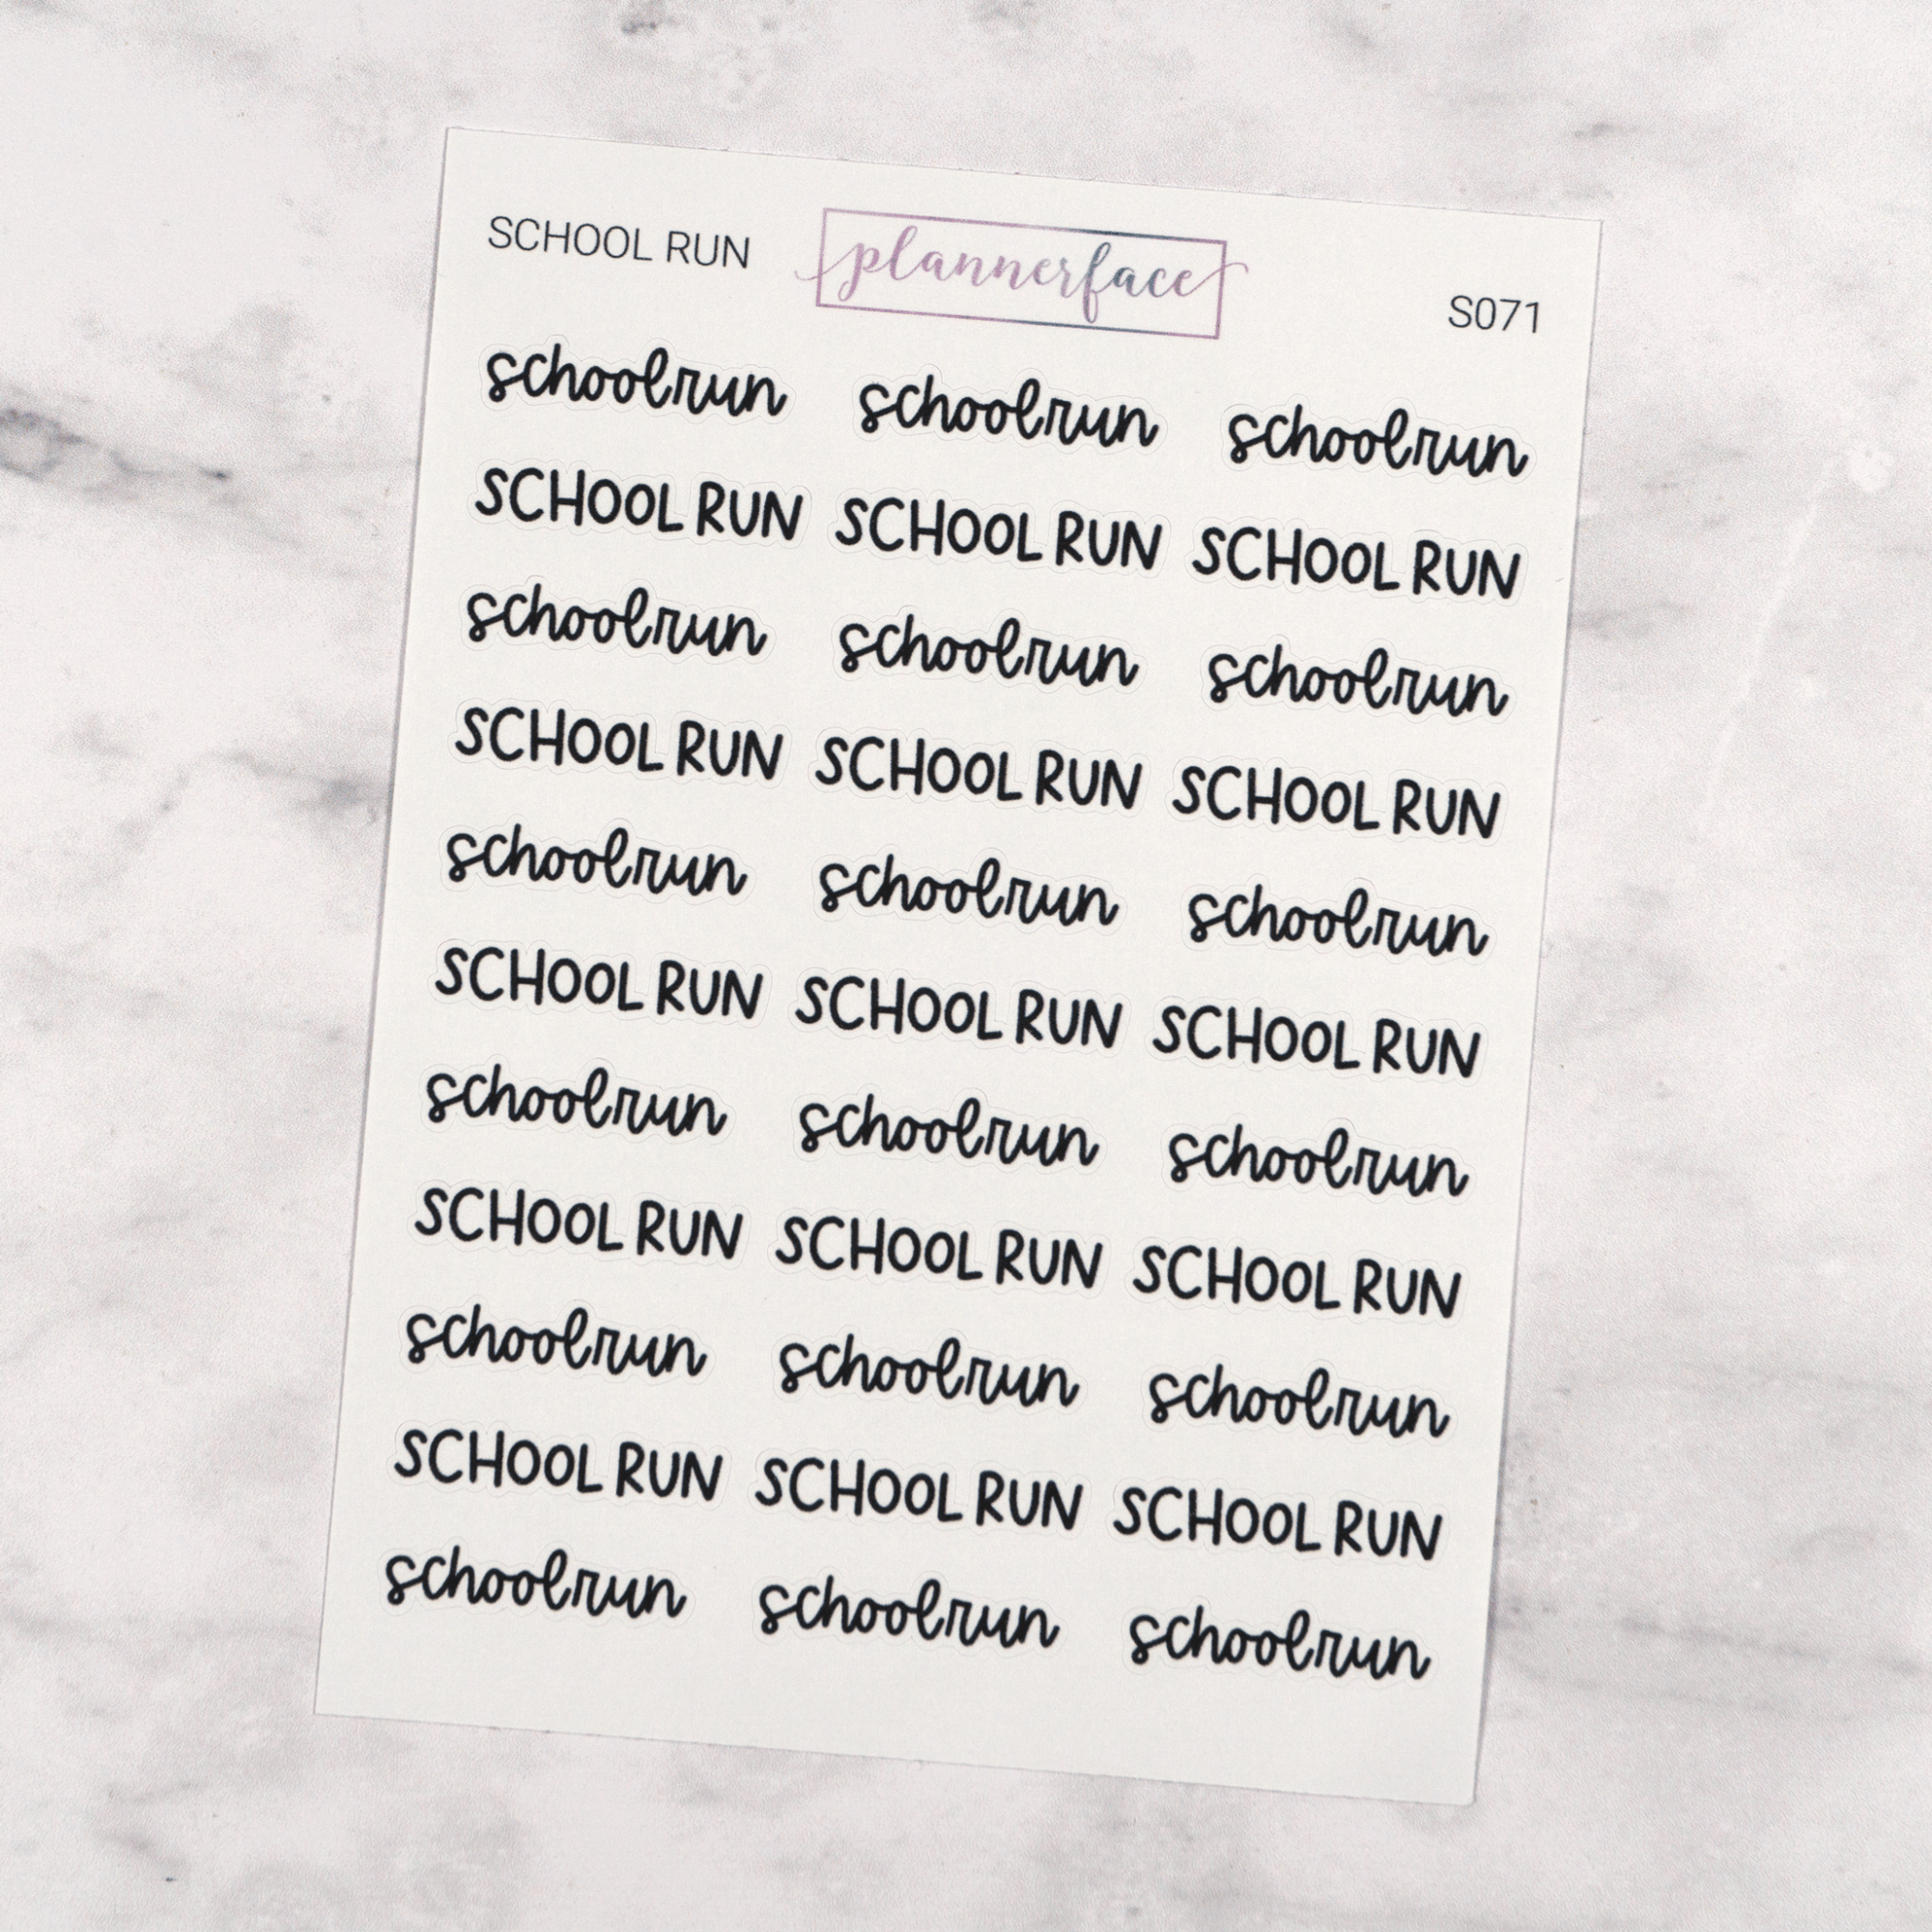 SCHOOL RUN plannerface S071
schoolrun schoolrun schoolrun
SCHOOL RUN SCHOOL RUN SCHOOL RUN
schoolrun schoolrun schoolrun
SCHOOL RUN SCHOOL RUN SCHOOL RUN
schoolrun schoolrun schoolrun
SCHOOL RUN SCHOOL RUN SCHOOL RUN
schoolrun schoolrun schoolrun
SCHOOL RUN SCHOOL RUN SCHOOL RUN
schoolrun schoolrun schoolrun
SCHOOL RUN SCHOOL RUN SCHOOL RUN
schoolrun schoolrun schoolrun